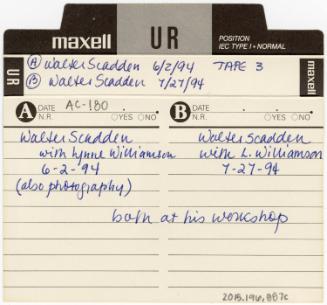 maxell UR POSITION
IEC TYPE I • NORMAL
UR
Ⓐ Walter Scadden 6/2/94 TAPE 3
Ⓑ Walter Scadden 7/27/94
A DATE AC-180
N.R. ○YES ○NO
B DATE
N.R. ○YES ○NO
Walter Scadden
with Lynne Williamson
6-2-'94
(also photography)
Walter Scadden
with L. Williamson
7-27-94
both at his workshop
2015.196.887c